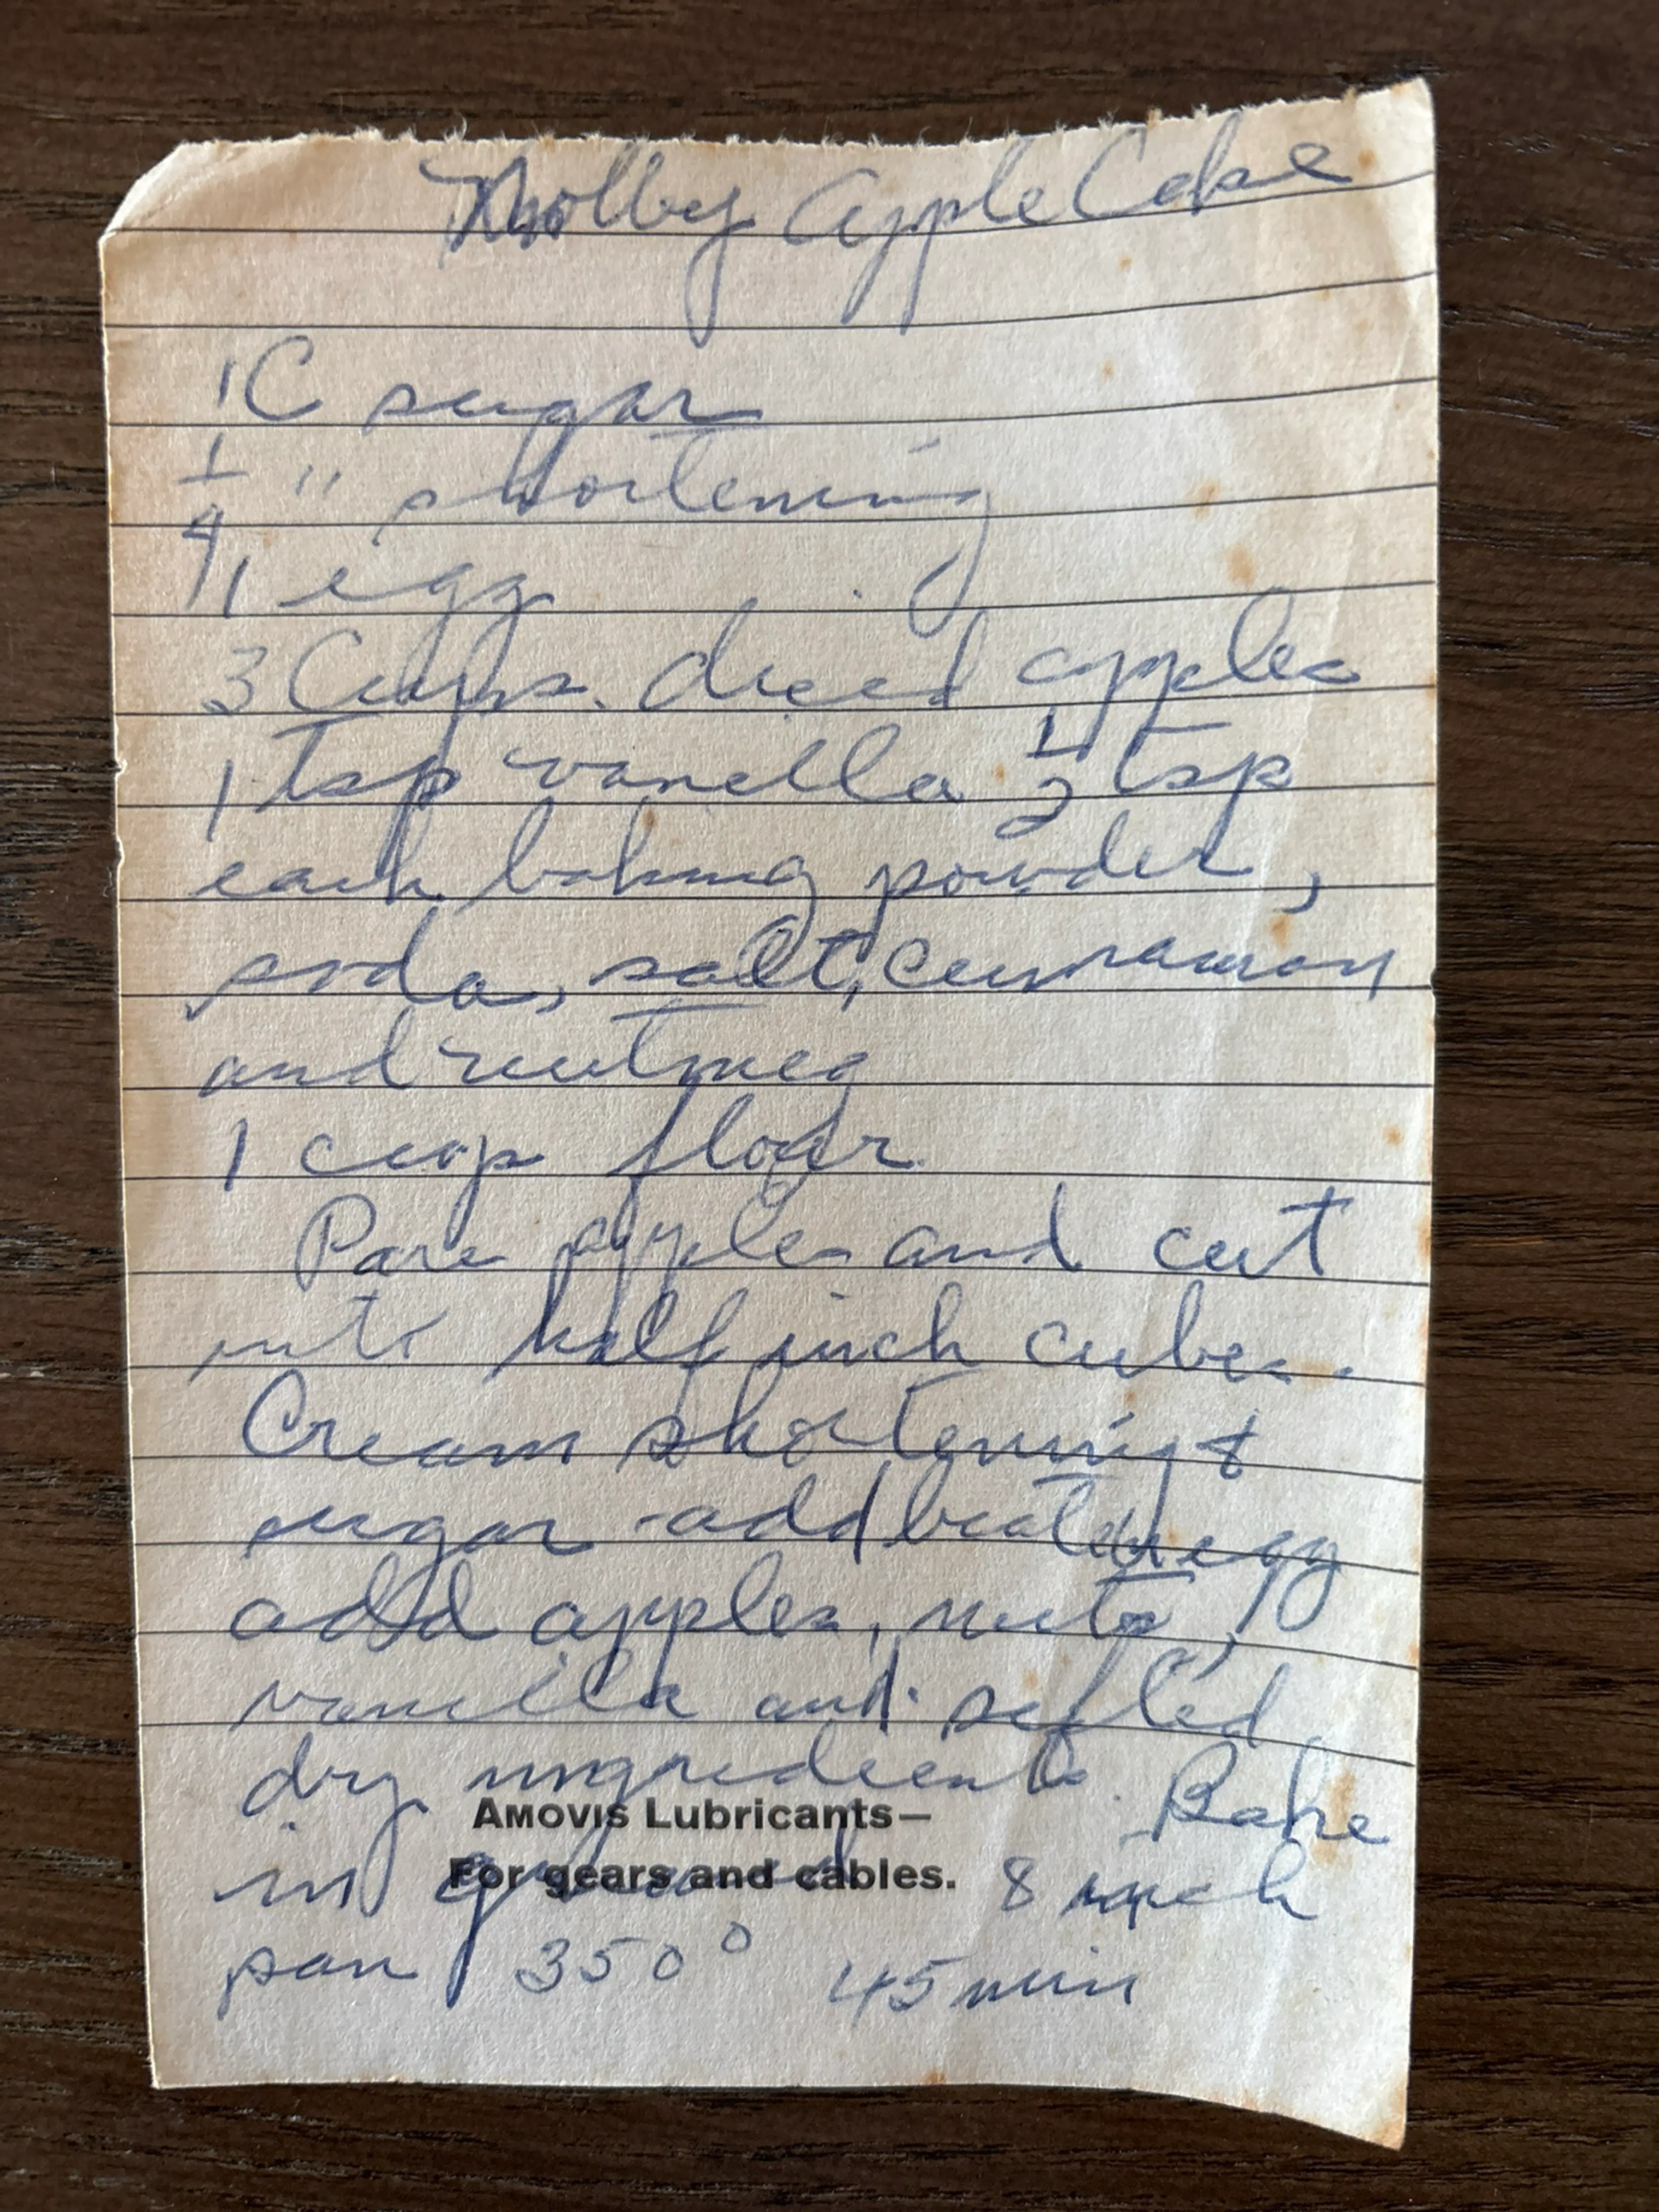 Apple Cake
1 C sugar
1/4 " shortening
1 egg
3 Cups diced apples
1 tsp vanilla 1/2 tsp
each baking powder,
soda, salt, cinnamon
and nutmeg
1 cup flour
Pare apples and cut
into half inch cubes.
Cream shortening &
sugar - add beaten egg
add apples, nuts,
vanilla and sifted
dry ingredients. Bake
AMOVIS Lubricants—
For gears and cables.
in greased 8 inch
pan 350° 45 min